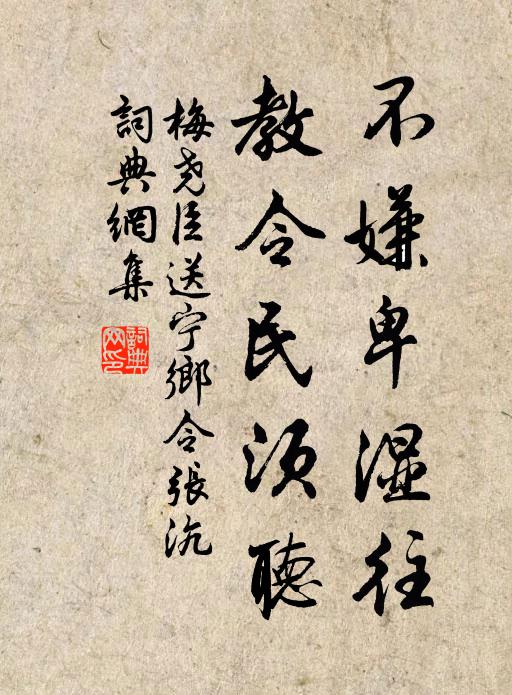 不嫌卑湿往
教令民须聽
梅尧臣送宁鄉令張沆
詞典網集
詞典
网印